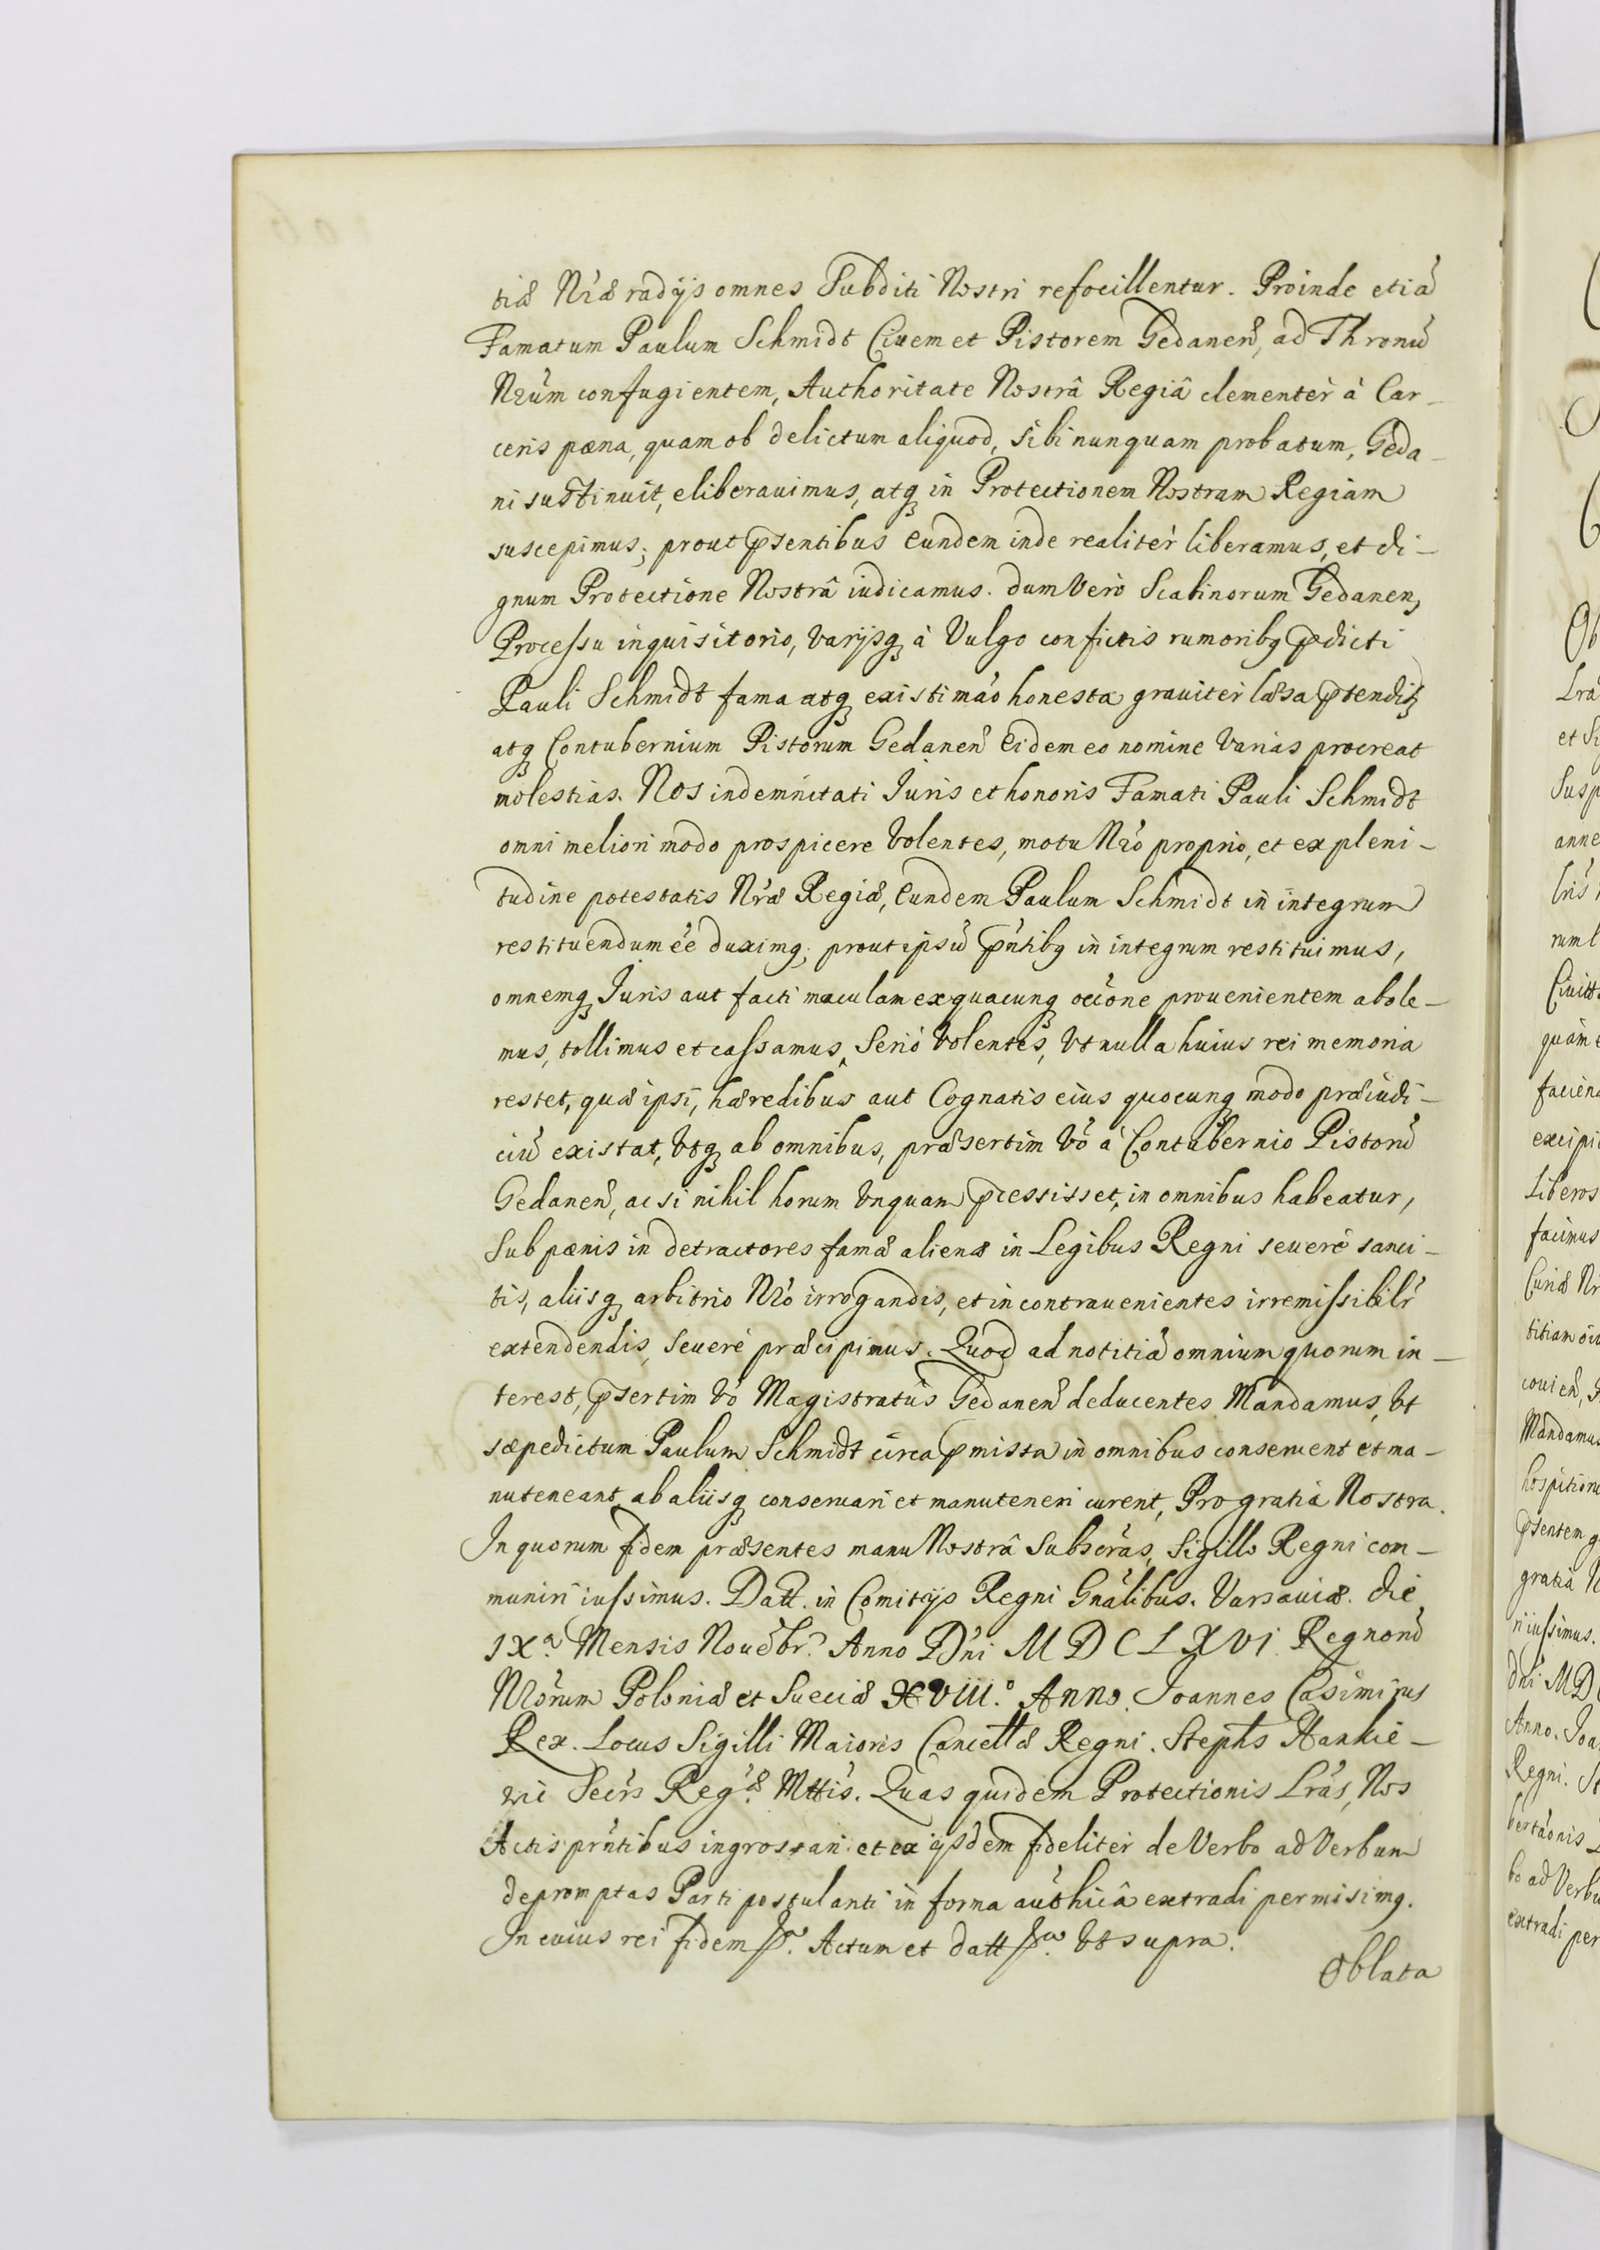 tiæ Nræ radijs omnes Subditi Nostri refocillentur. Proinde etiã
Famatum Paulum Schmidt Ciuem et Pistorem Gedanen̄, ad Thronũ
Nrũm confugientem, Authoritate Nostrâ Regiâ clementèr à Car-
ceris pæna, quam ob delictum aliquod, sibi nunquam probatum, Geda-
ni sustinuit, eliberauimus, atq in Protectionem Nostram Regiam
suscepimus; prout p̄sentibus eundem inde realitèr liberamus, et di-
gnum Protectione Nostrâ iudicamus. dum Verò Scabinorum Gedanen,
Processu inquisitorio, Varijsq à Vulgo confictis rumoribq p̄dicti
Pauli Schmidt fama atq existimaõ honesta grauiter læsa p̄tendit
atq Contubernium Pistorum Gedanen̄ Eidem eo nomine Varias procreat
molestias. Nos indemnitati Juris et honoris Famati Pauli Schmidt
omni meliori modo prospicere Volentes, motu Nr̃o proprio, et ex pleni-
tudine potestatis Nr̃æ Regiæ, Eundem Paulum Schmidt in integrum
restituendum ẽe duximq; prout ipsũ p̄ñtibq in integrum restituimus,
omnemq Juris aut facti maculam ex quacunq occ̃one prouenientem abole-
mus, tollimus et cassamus, Seriò Volentes, Vt nulla huius rei memoria
restet, quæ ipsi, hæredibus aut Cognatis eius quocunq modo præiudi-
ciũ existat, Vtq ab omnibus, præsertim Võ à Contubernio Pistorũ
Gedanen̄, ac si nihil horum Vnquam p̄cessisset, in omnibus habeatur,
Sub pænis in detractores famæ alienæ in Legibus Regni seuerè sanci-
tis, aliisq arbitrio Nr̃o irrogandis, et in contrauenientes irremissibilr̃
extendendis, Seuerè præcipimus. Quod ad notitiã omnium quorum in-
terest, p̄sertim Võ Magistratus Gedanen̄ deducentes Mandamus, Vt
sæpedictum Paulum Schmidt circa p̄missa in omnibus conseruent et ma-
nuteneant, ab aliisq conseruari et manuteneri curent, Pro gratia Nostra.
In quorum fidem præsentes manu Nostrâ Subscr̃as, Sigillo Regni com-
muniri iussimus. Datt. in Comitijs Regni Gñalibus. Varsauiæ. die
IXa. Mensis Nouẽbr. Anno Dñi MDCLXVI. Regnorũ
Nr̃orum Poloniæ et Sueciæ XVIII.o Anno. Joannes Casimirus
Rex. Locus Sigilli Maioris Cancellæ Regni. Stephs Hankie-
wic Secrs Regæ. Mttis. Quas quidem Protectionis Lr̃as, Nos
Actis præñtibus ingrossari et ex ijsdem fideliter de Verbo ad Verbum
depromptas Parti postulanti in forma authicâ extradi permisimq.
In cuius rei fidem p. Actum et datt p. Vt supra.
Oblata